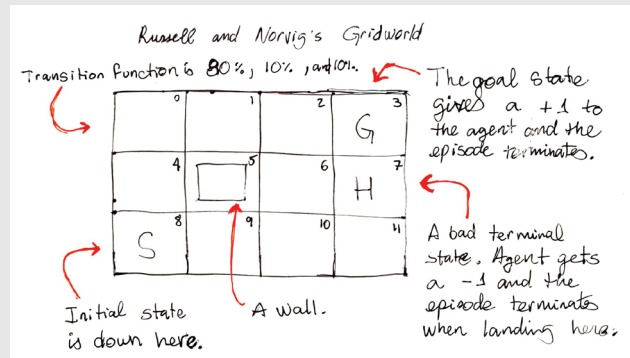 Russell and Norvig's Gridworld
Transition function is 80%, 10%, and 10%.
The goal state
gives a +1 to
the agent and the
episode terminates.
0 1 2 3
G
4 5 6 7
H
8 9 10 11
S
A bad terminal
state. Agent gets
a -1 and the
episode terminates
when landing here.
Initial state
is down here.
A wall.